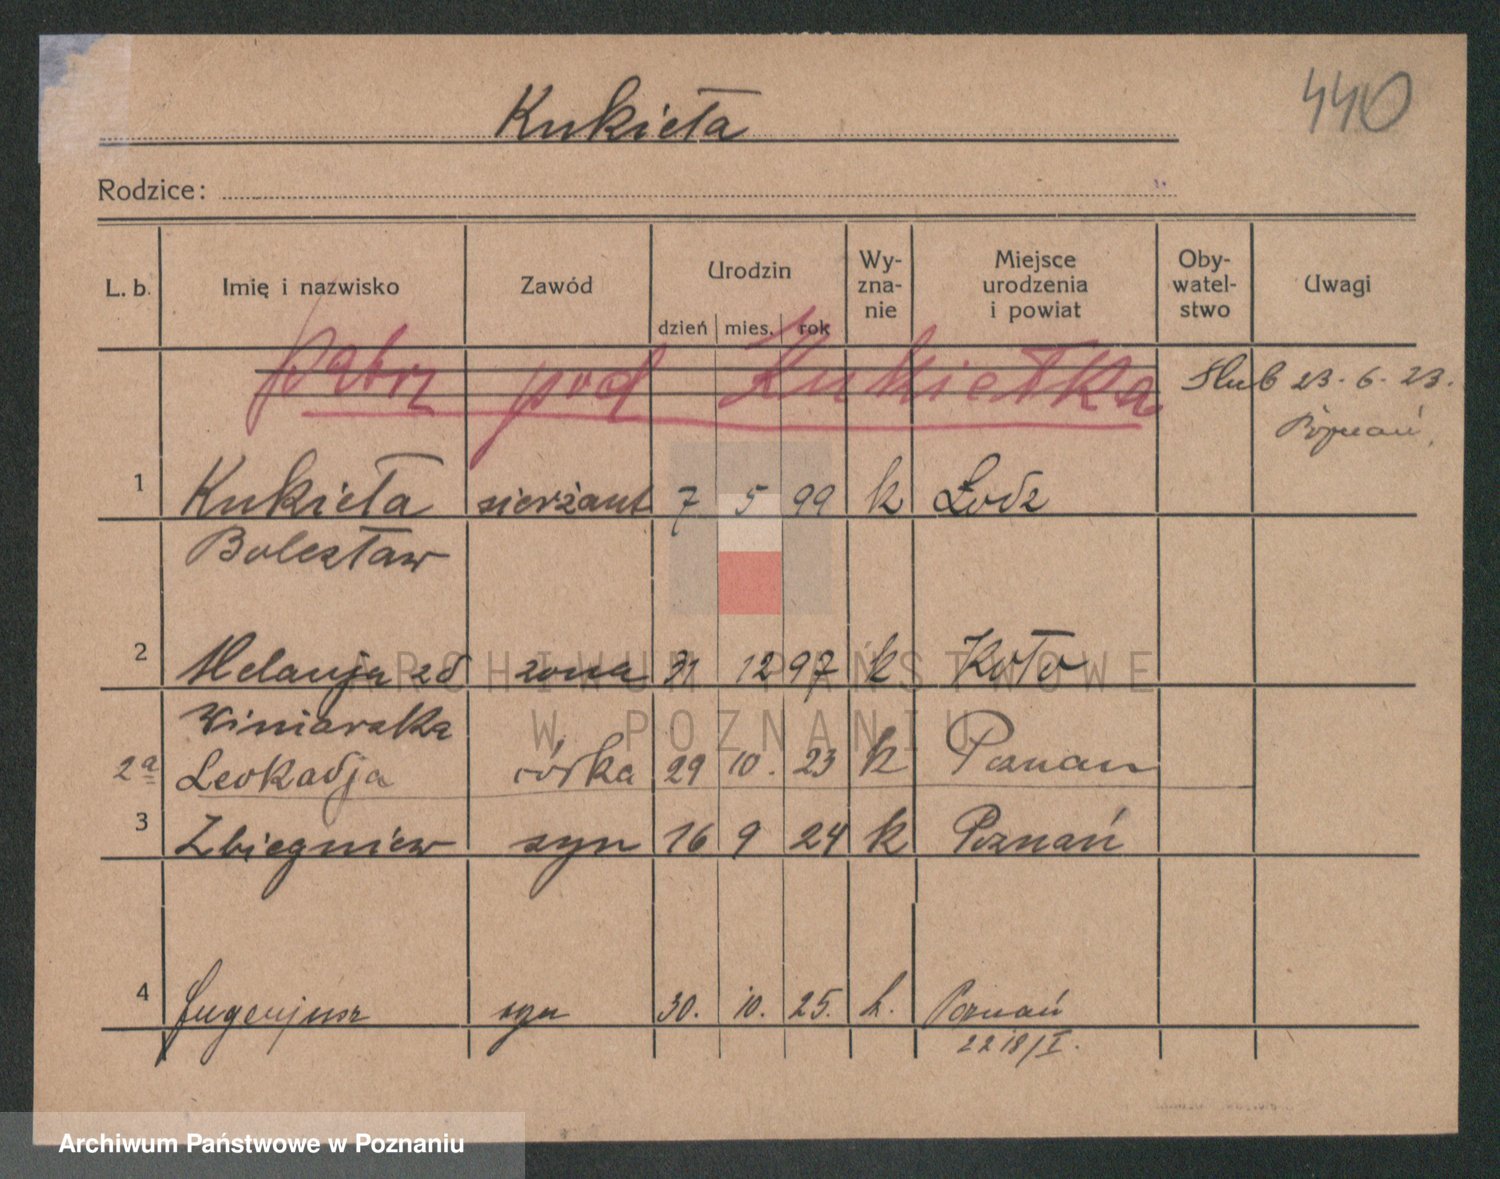 Kukieła
440
Rodzice:
L. b. Imię i nazwisko Zawód Urodzin dzień mies. rok Wy-zna-nie Miejsce urodzenia i powiat Oby-watel-stwo Uwagi
patrz pod Kukiełka
Ślub 23. 6. 23.
Poznań.
1 Kukieła sierżant 7 5 99 k Łódź
Bolesław
2 Melanja zd żona 31 12 97 k Koło
Winiarska
2a Leokadja córka 29 10. 23 k Poznań
3 Zbiegniew syn 16 9 24 k Poznań
4 Eugenjusz syn 30. 10. 25. k. Poznań
ARCHIWUM PAŃSTWOWE
W POZNANIU
Archiwum Państwowe w Poznaniu